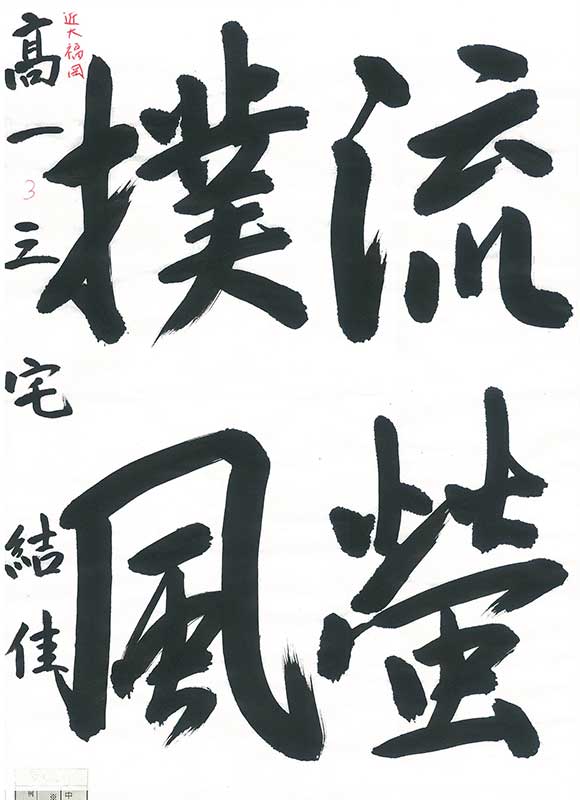 流螢
撲風
高一三宅結佳
近大福岡
3